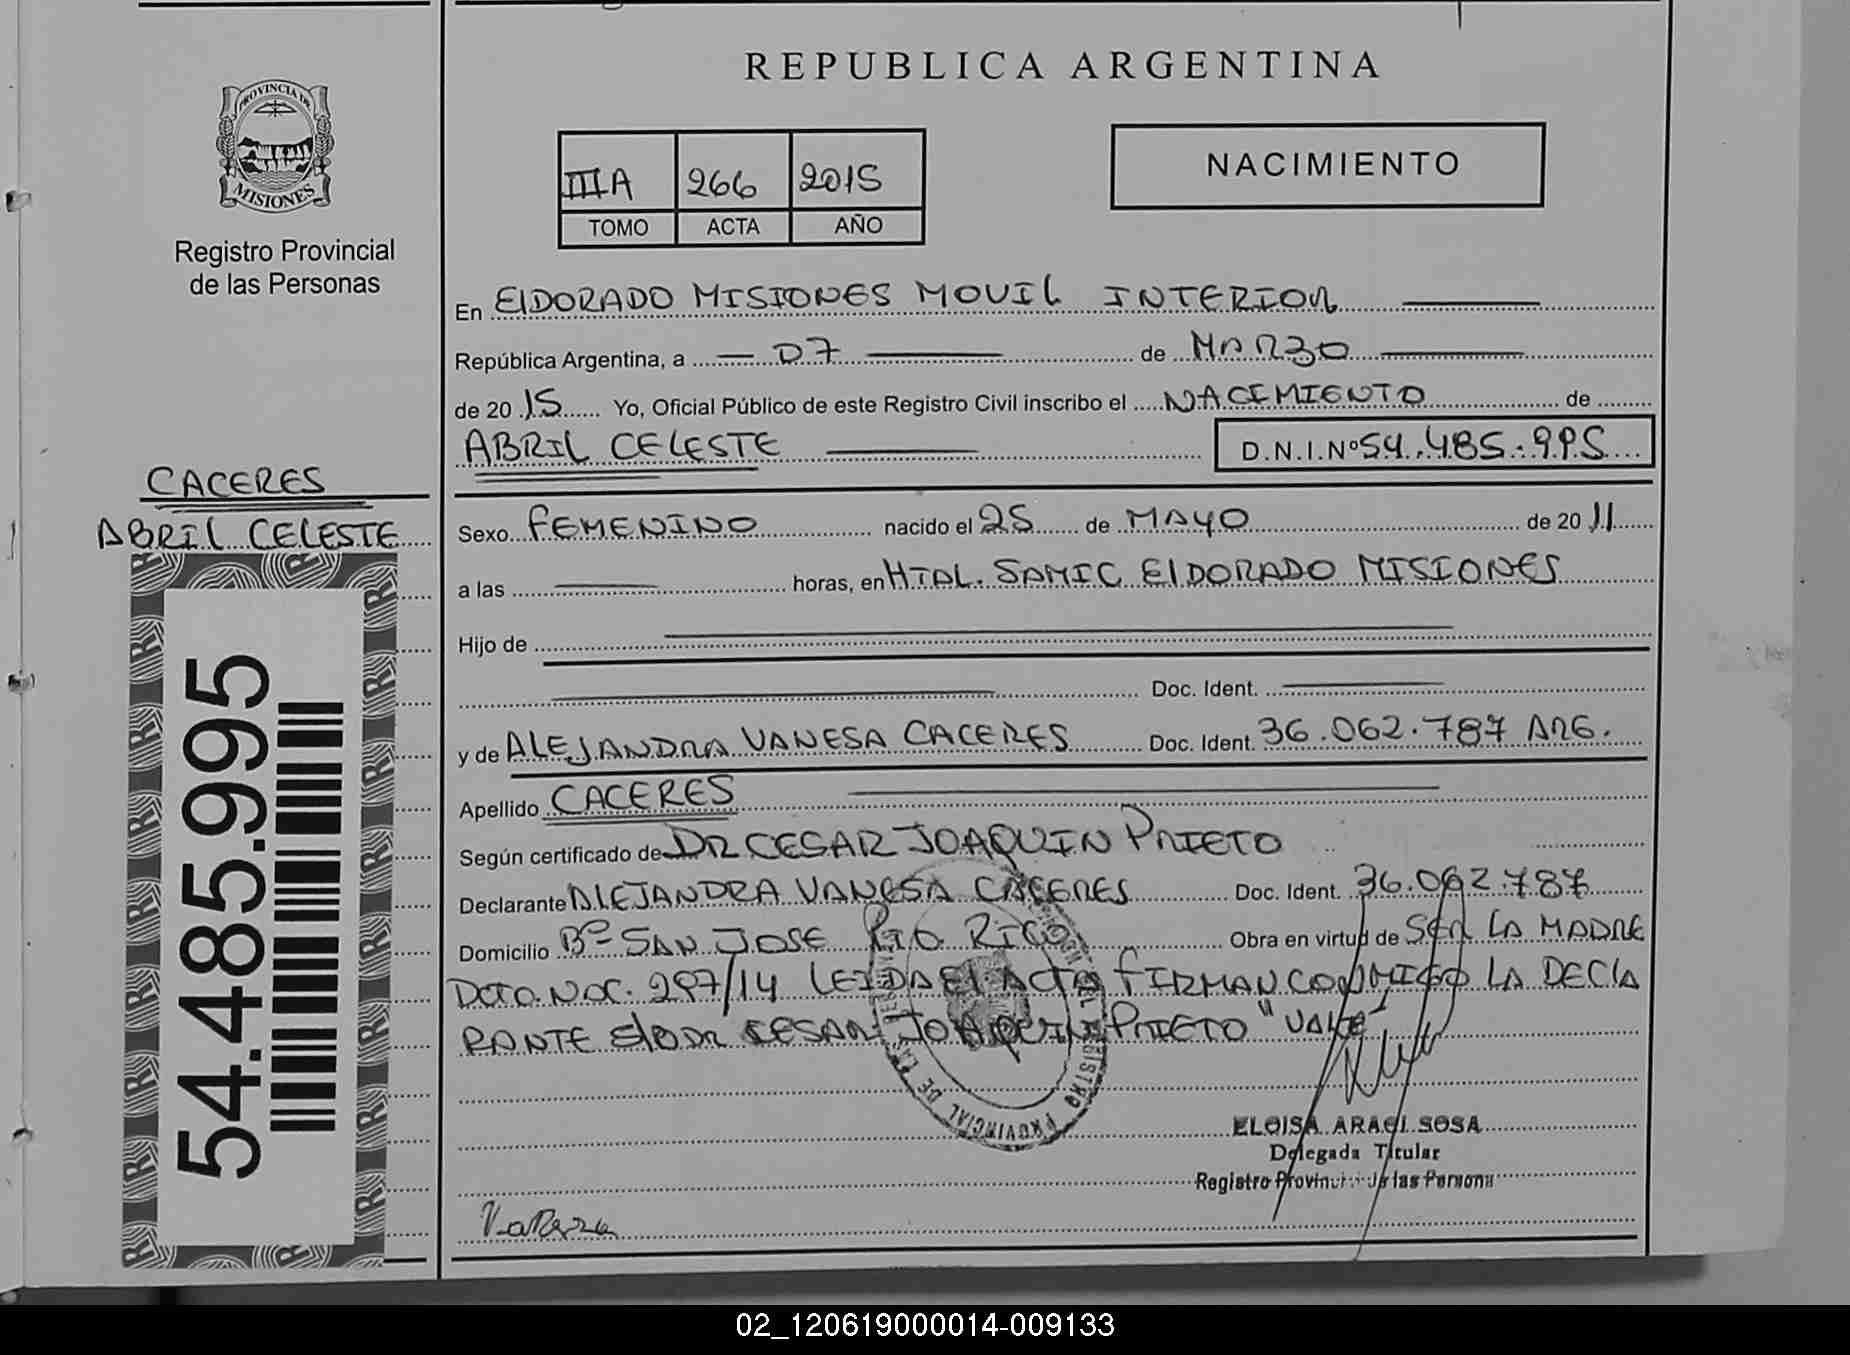 REPUBLICA ARGENTINA
PROVINCIA DE
MISIONES
Registro Provincial
de las Personas
IIIA 266 2015
TOMO ACTA AÑO
NACIMIENTO
En ElDORADO MISIONES MOVIL INTERIOR
República Argentina, a 07 de MARZO
de 2015 Yo, Oficial Público de este Registro Civil inscribo el NACIMIENTO de
ABRIL CELESTE D.N.I.Nº 54.485.995
CACERES
ABRIL CELESTE
Sexo FEMENINO nacido el 25 de MAYO de 2011
a las horas, en HTAL. SAMIC ElDORADO MISIONES
Hijo de
Doc. Ident.
y de ALEJANDRA VANESA CACERES Doc. Ident. 36.062.787 ARG.
Apellido CACERES
Según certificado de DR CESAR JOAQUIN PRIETO
Declarante ALEJANDRA VANESA CACERES Doc. Ident. 36.062.787
Domicilio Bº SAN JOSE RIO RICO Obra en virtud de SER LA MADRE
DCTO. NAC. 297/14 LEIDA El ACTA FIRMAN CONMIGO LA DECLA
RANTE DR CESAR JOAQUIN PRIETO "VALE"
54.485.995
REGISTRO PROVINCIAL DE LAS
ELOISA ARACI SOSA
Delegada Titular
Registro Provincial de las Persona
02_120619000014-009133